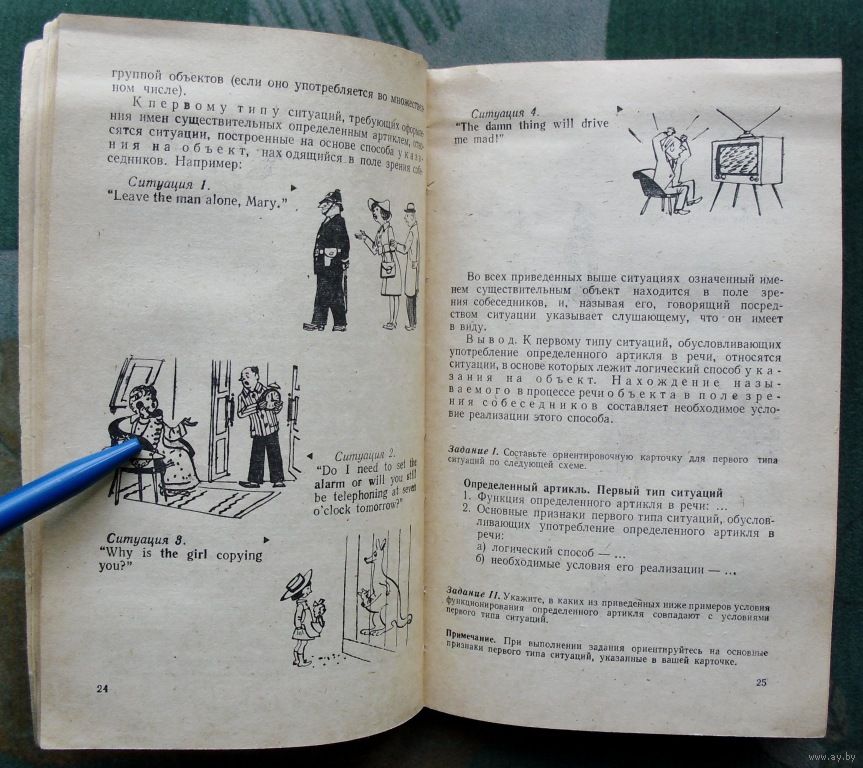 группой объектов (если оно употребляется во множествен-
ном числе).
К первому типу ситуаций, требующих оформле-
ния имен существительных определенным артиклем, отно-
сятся ситуации, построенные на основе способа указа-
ния на объект, находящийся в поле зрения собе-
седников. Например:
Ситуация 1.
“Leave the man alone, Mary.”
Ситуация 2.
“Do I need to set the
alarm or will you still
be telephoning at seven
o'clock tomorrow?”
Ситуация 3.
“Why is the girl copying
you?”
24
Ситуация 4.
“The damn thing will drive
me mad!”
Во всех приведенных выше ситуациях означенный име-
нем существительным объект находится в поле зре-
ния собеседников, и, называя его, говорящий посред-
ством ситуации указывает слушающему, что он имеет
в виду.
Вывод. К первому типу ситуаций, обусловливающих
употребление определенного артикля в речи, относятся
ситуации, в основе которых лежит логический способ ука-
зания на объект. Нахождение назы-
ваемого в процессе речи объекта в поле зре-
ния собеседников составляет необходимое усло-
вие реализации этого способа.
Задание I. Составьте ориентировочную карточку для первого типа
ситуаций по следующей схеме.
Определенный артикль. Первый тип ситуаций
1. Функция определенного артикля в речи: ...
2. Основные признаки первого типа ситуаций, обуслов-
ливающих употребление определенного артикля в
речи:
а) логический способ — ...
б) необходимые условия его реализации — ...
Задание II. Укажите, в каких из приведенных ниже примеров условия
функционирования определенного артикля совпадают с условиями
первого типа ситуаций.
Примечание. При выполнении задания ориентируйтесь на основные
признаки первого типа ситуаций, указанные в вашей карточке.
25
www.ay.by